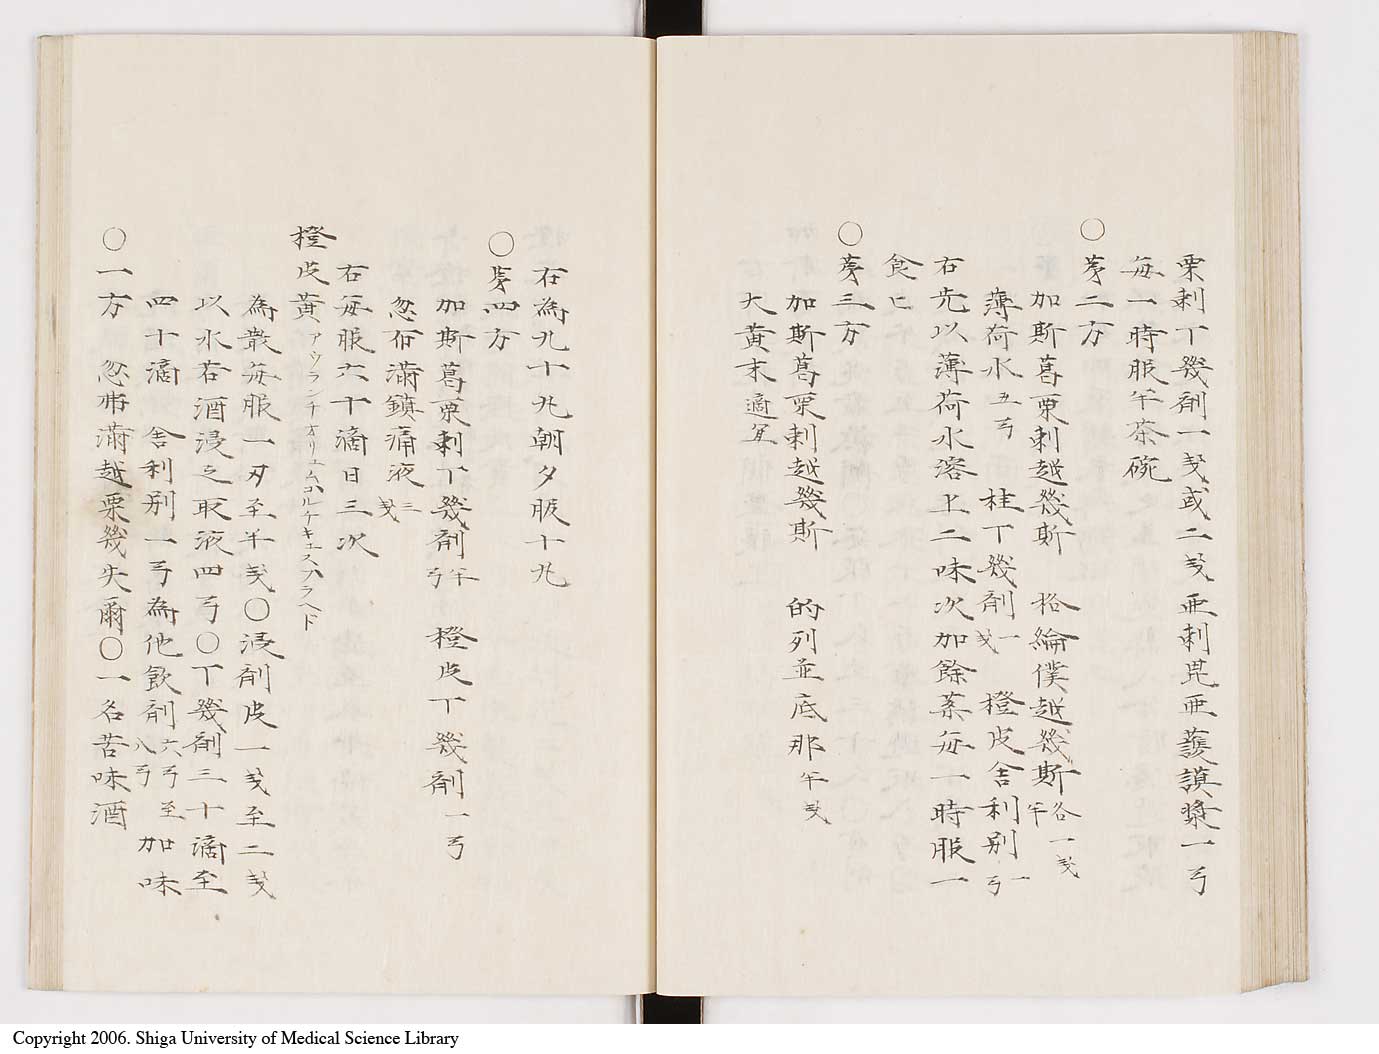 栗剌丁幾剤一戔或二戔亜剌毘亜護謨漿一弓
毎一時服半茶碗
○第二方
加斯葛栗剌越幾斯 格綸僕越幾斯各一戔半
薄荷水五弓 桂丁幾剤一戔 橙皮舎利別一弓
右先以薄荷水溶上二味次加餘薬毎一時服一
食匕
○第三方
加斯葛栗剌越幾斯 的列並底那半戔
大黄末適宜
右為丸十丸朝夕服十丸
○第四方
加斯葛栗剌丁幾剤半弓 橙皮丁幾剤一弓
忽布満鎮痛液三戔
右毎服六十滴日三次
橙皮黄アウランチオリュムコルケキュスフラヘド
為散毎服一刃至半戔○浸剤皮一戔至二戔
以水若酒浸之取液四弓○丁幾剤三十滴至
四十滴 舎利別一弓為他飲剤六弓至八弓加味
○一方 忽弗満越栗幾失爾○一名苦味酒
Copyright 2006. Shiga University of Medical Science Library